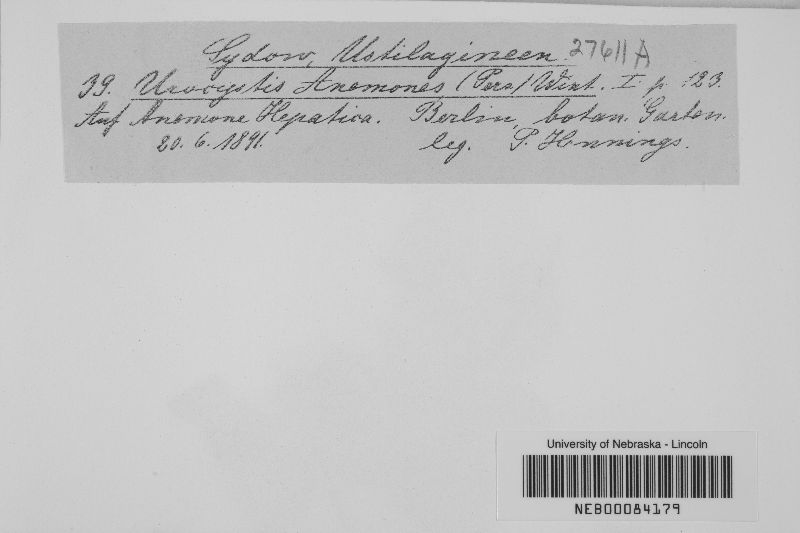 Sydow, Ustilagineen. 27611A
39. Urocystis Anemones (Pers.) Wint. I. p. 123.
Auf Anemone Hepatica. Berlin, botan. Garten.
20. 6. 1891. leg. P. Hennings.
University of Nebraska - Lincoln
NEB00084179